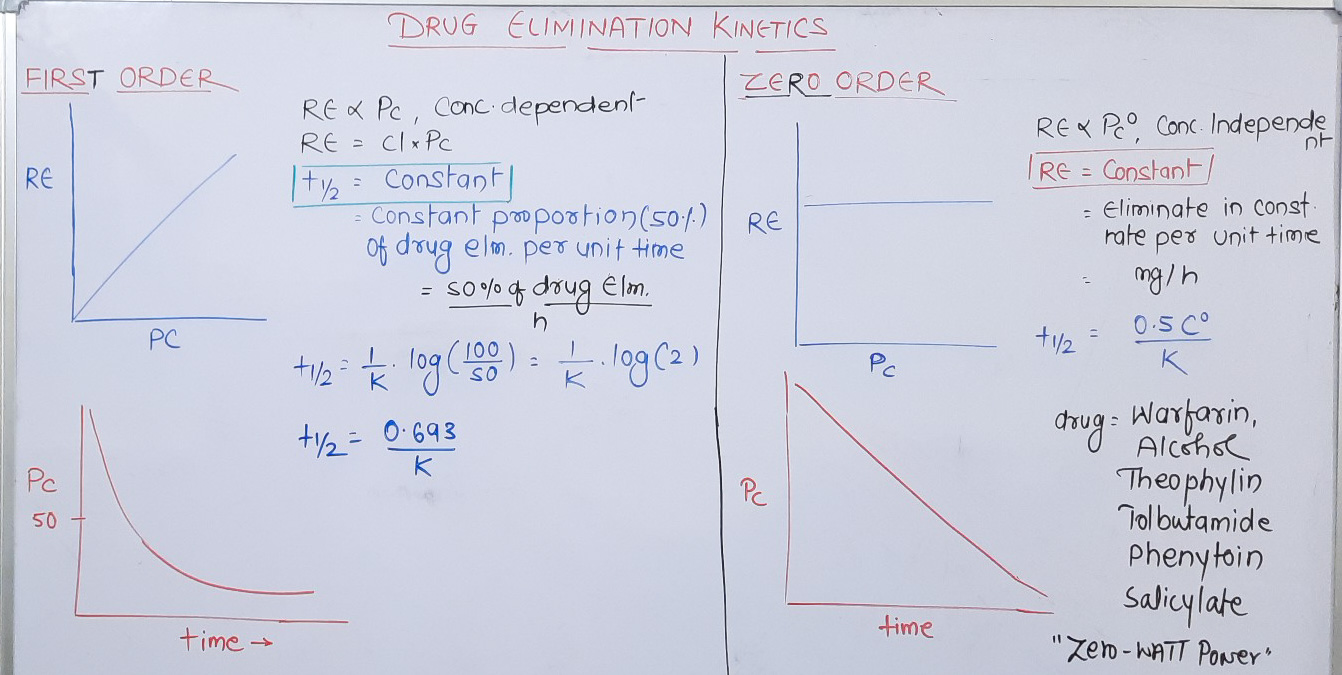 DRUG ELIMINATION KINETICS
FIRST ORDER
RE
PC
RE ∝ Pc, Conc. dependent
RE = Cl × Pc
t1/2 = Constant
= Constant proportion (50%)
of drug elm. per unit time
= 50% of drug Elm.
h
t1/2 = 1/K . log(100/50) = 1/K . log(2)
t1/2 = 0.693/K
Pc
50
time →
ZERO ORDER
RE
Pc
RE ∝ Pc⁰, Conc. Independe
nt
RE = Constant
= Eliminate in const.
rate per unit time
= mg/h
t1/2 = 0.5 C⁰/K
Pc
time
drug = Warfarin,
Alcohol
Theophylin
Tolbutamide
Phenytoin
Salicylate
"Zero-WATT Power"